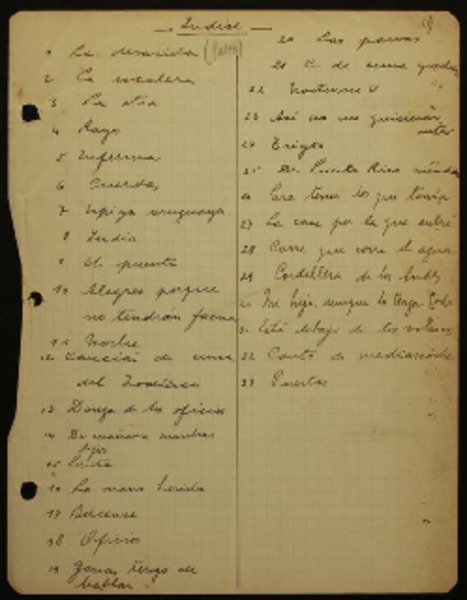 Indice
1 La desasida
2 La escalera
3 La otra
4 Rayo
5 Enferma
6 Cuerdas
7 Espiga uruguaya
8 India
9 El puente
10 Alegres porque
no tendrán faena
11 Noche
12 Canción de cuna
del Zodíaco
13 Danza de los oficios
14 De mañana
15
16 La mano herida
17 Berceuse
18 Oficios
19 Ganas tengo de
hablar
20 Las parvas
21 C. de cuna
22 Nocturno
23 Así no me quisieran
24 Trigos
25 De Puerto Rico
26 Para tener los que tenía
27 La casa por la que entré
28 Corre que corre el agua
29 Cordillera de los Andes
30 Mi hijo, aunque lo tenga todo
31 Está debajo de los volcanes
32 Canto de mediodía
33 Puertas